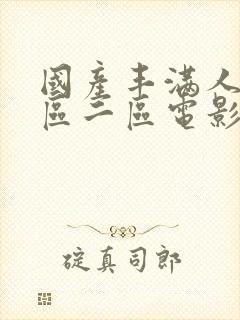 國產丰滿人
區二區電影
碇真司郎